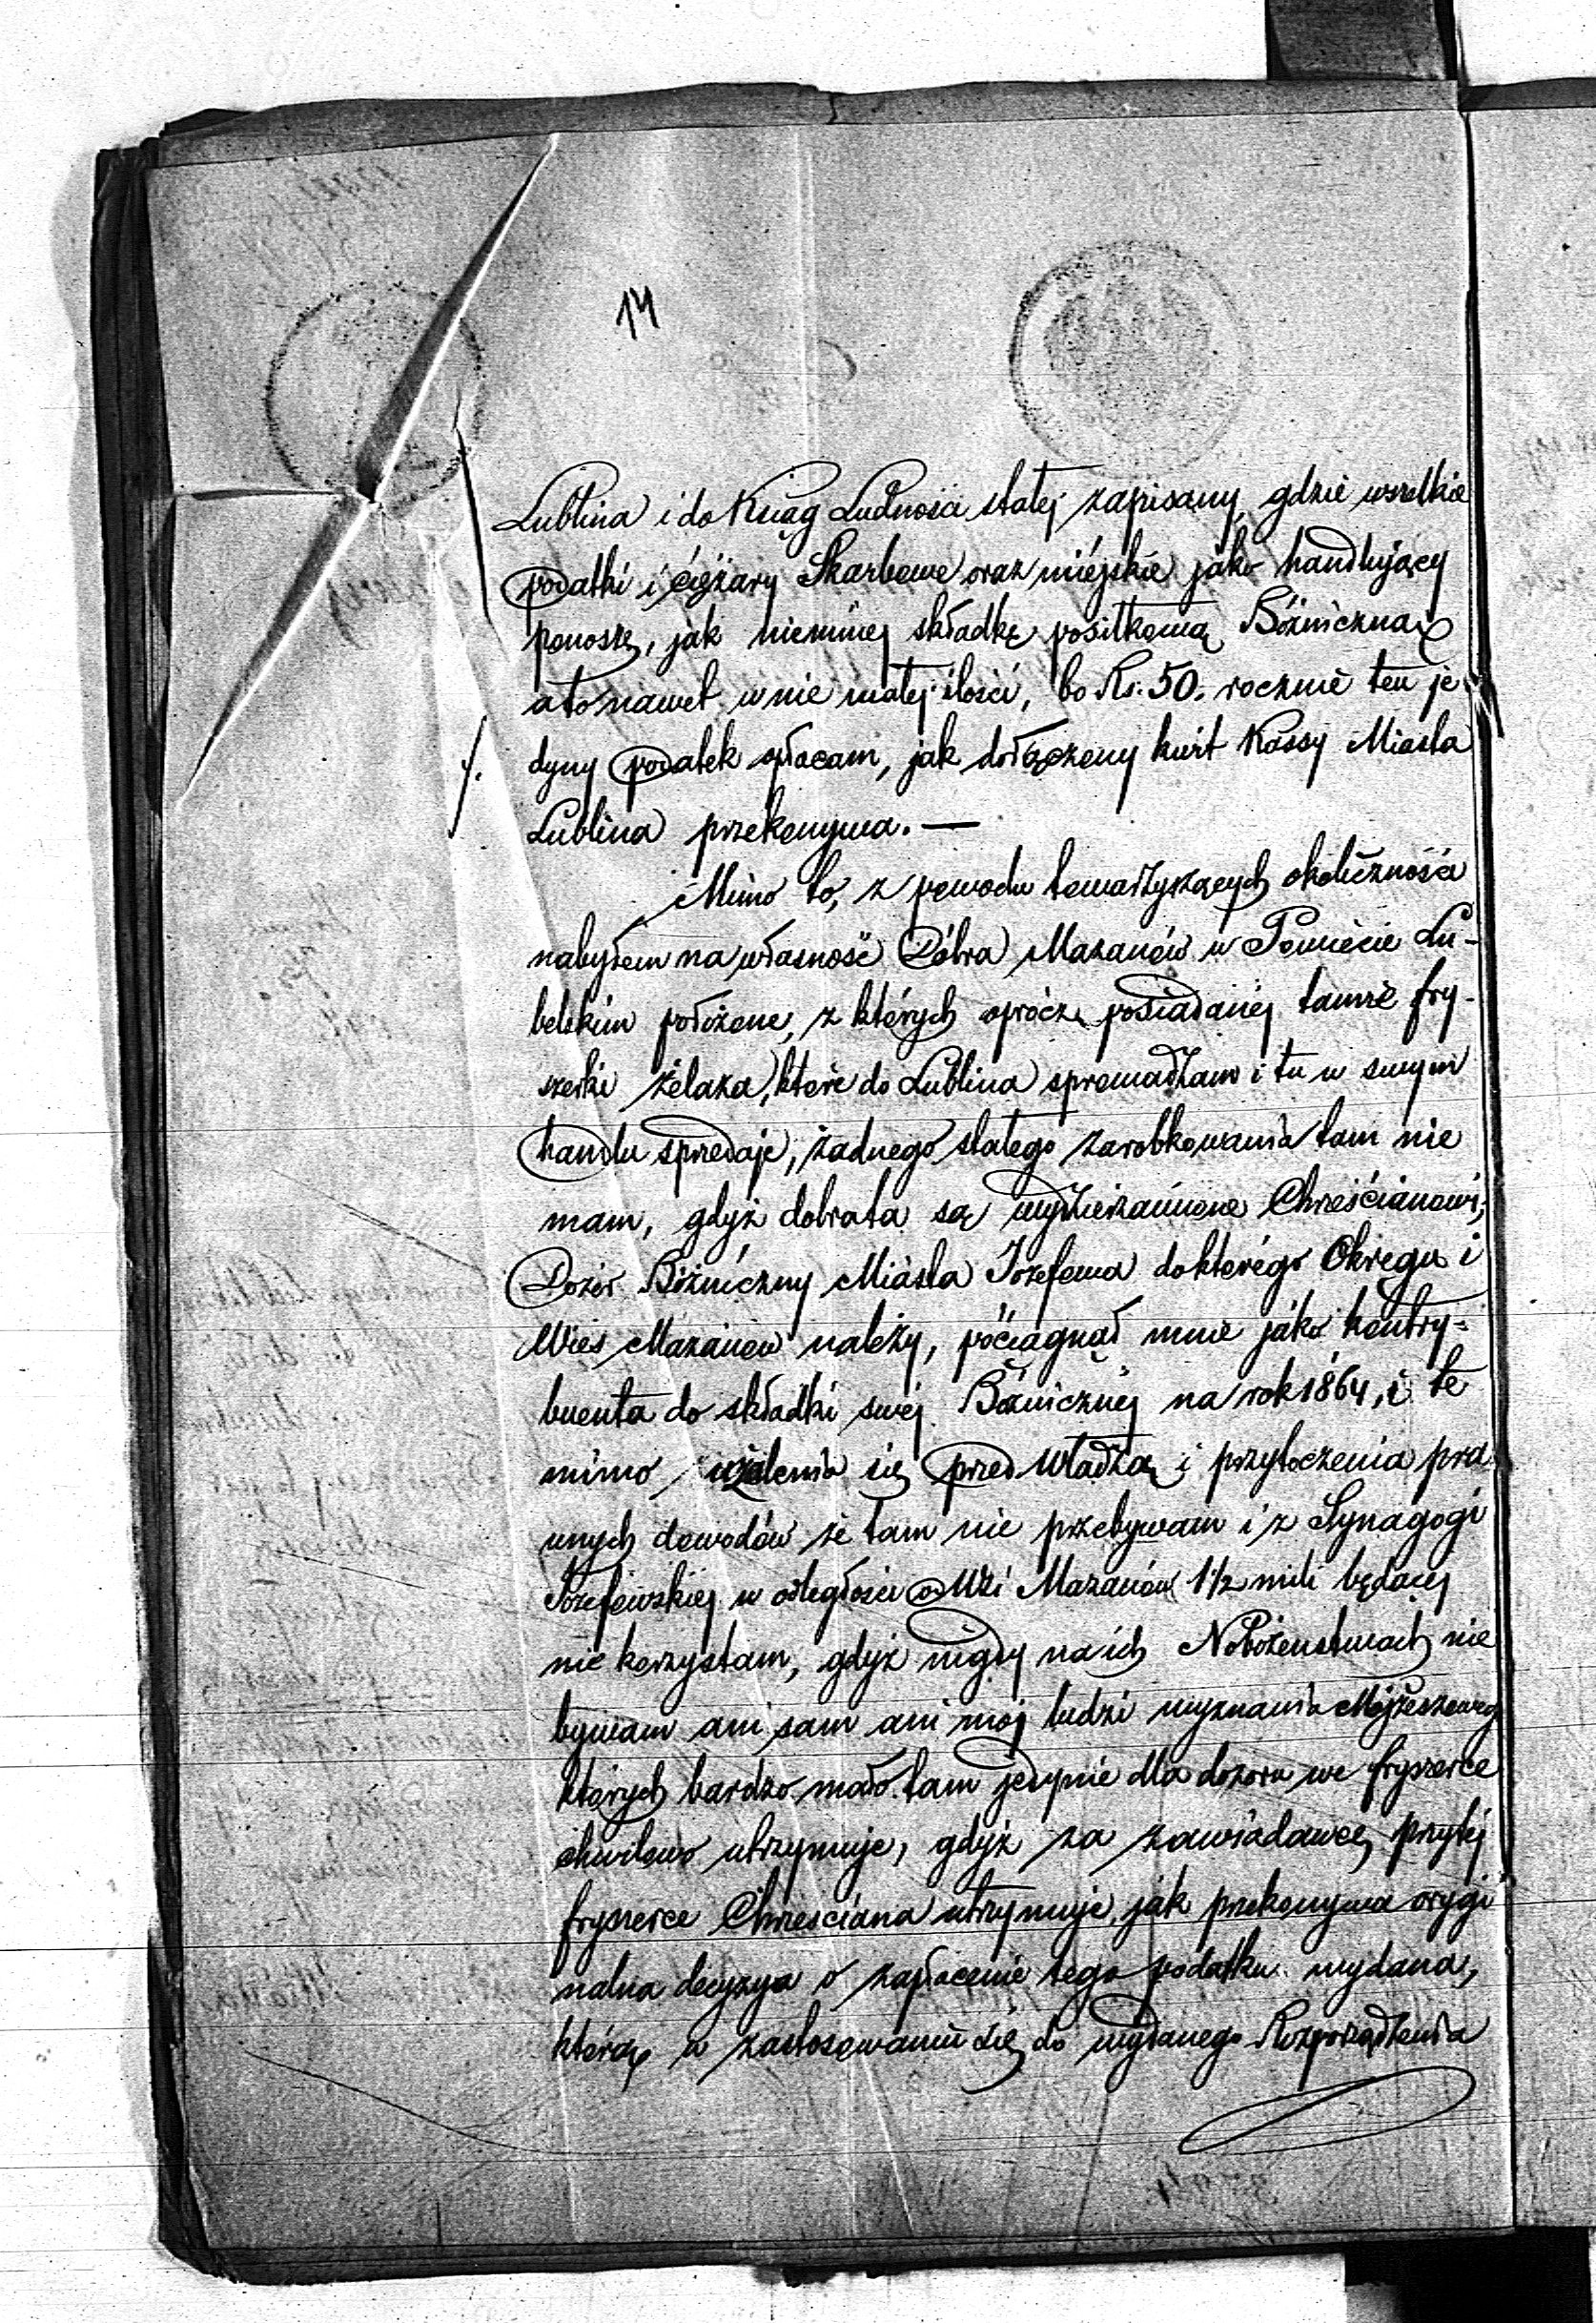 14
Lublina i do Ksiąg Ludności stałej zapisany, gdzie wszelkie
podatki i ciężary Skarbowe oraz miejskie jako handlujący
ponoszę, jak niemniej składkę posiłkową Bóżniczną
a to nawet w nie małej ilości, bo Rs. 50. rocznie ten je
dyny podatek opłacam, jak dołączony kwit Kassy Miasta
Lublina przekonywa. —
Mimo to, z powodu towarzyszących okoliczności
nabyłem na własność Dobra Mazanów w Powiecie Lu-
belskim położone, z których oprócz posiadanej tamże fry-
szerki żelaza, które do Lublina sprowadzam i tu w swym
handlu sprzedaję, żadnego stałego zarobkowania tam nie
mam, gdyż dobra ta są wydzierżawione Chrześcianowi;
Dozór Bóżniczny Miasta Józefowa do którego Okręgu i
Wieś Mazanów należy, pociągnął mnie jako kontry-
buenta do składki swej Bóżnicznej na rok 1864, i to
mimo użalenia się przed Władzą i przytoczenia pra
wnych dowodów że tam nie przebywam i z Synagogi
Józefowskiej w odległości od Wsi Mazanów 1 1/2 mili będącej
nie korzystam, gdyż nigdy na ich Nabożeństwach nie
bywam ani sam ani moj ludzi wyznania Mojżeszowego
których bardzo mało tam jedynie dla dozoru we fryszerce
chwilowo utrzymuję, gdyż za zawiadawcę przy tej
fryszerce Chrześciana utrzymuję, jak przekonywa orygi
nalna decyzya o zapłacenie tego podatku wydana,
którą w zastosowaniu się do wydanego Rozporządzenia